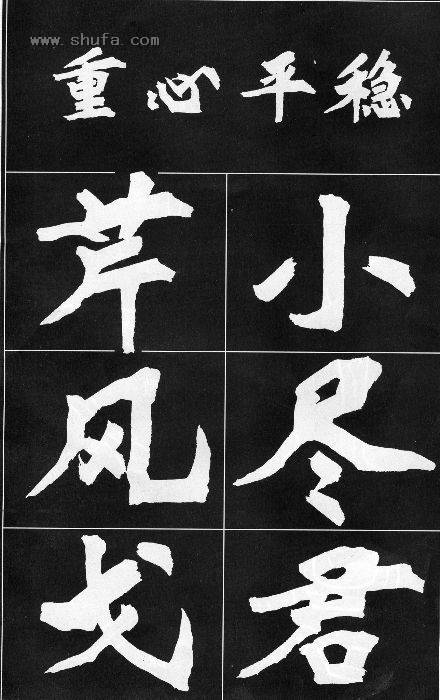 www.shufa.com
重心平稳
芹小
风尽
戈君